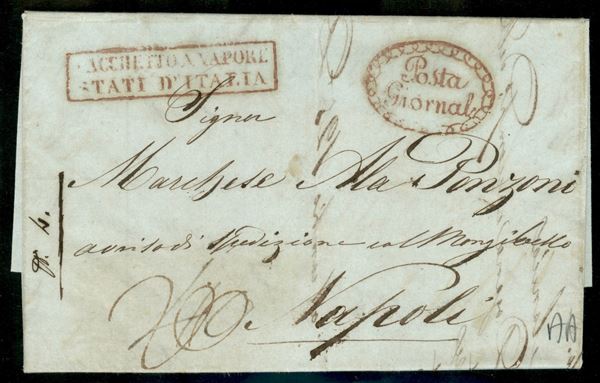 PACCHETTO A VAPORE
STATI D'ITALIA
Posta
Giornal
Signor
Marchese Ala Ponzoni
avviso di spedizione col Mongibello
Napoli
AA